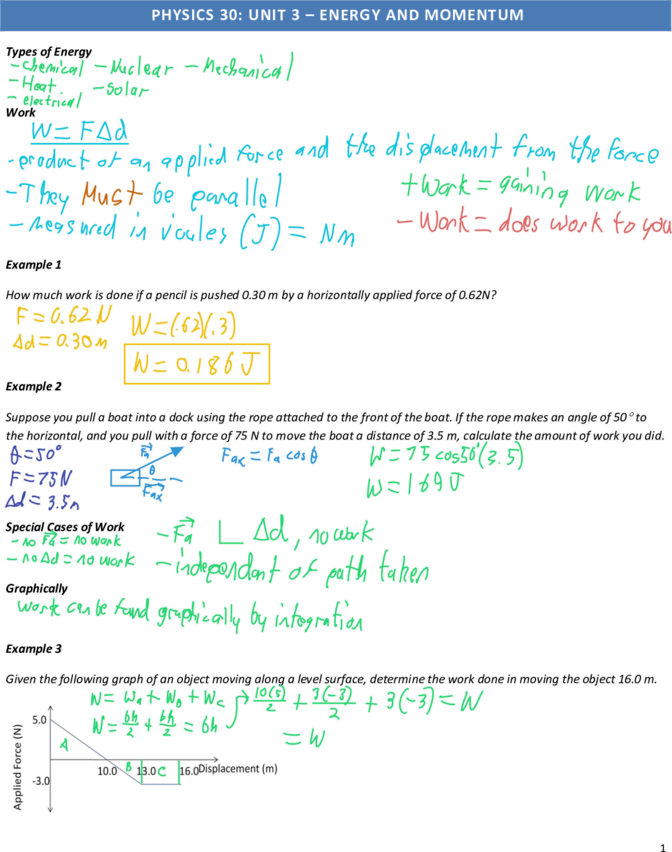 PHYSICS 30: UNIT 3 – ENERGY AND MOMENTUM
Types of Energy
- Chemical - Nuclear - Mechanical
- Heat - Solar
- electrical
Work
W = FΔd
- product of an applied force and the displacement from the force
- They Must be parallel
+ Work = gaining work
- Measured in joules (J) = Nm
- Work = does work to you
Example 1
How much work is done if a pencil is pushed 0.30 m by a horizontally applied force of 0.62N?
F = 0.62 N W = (.62)(.3)
Δd = 0.30 m
W = 0.186 J
Example 2
Suppose you pull a boat into a dock using the rope attached to the front of the boat. If the rope makes an angle of 50° to
the horizontal, and you pull with a force of 75 N to move the boat a distance of 3.5 m, calculate the amount of work you did.
θ = 50° Fa Fax = Fa cosθ W = 75 cos50°(3.5)
F = 75N θ W = 169 J
Δd = 3.5m Fax
Special Cases of Work
- no Fa = no work - Fa ∟ Δd, no work
- no Δd = no work - independant of path taken
Graphically
Work can be found graphically by integration
Example 3
Given the following graph of an object moving along a level surface, determine the work done in moving the object 16.0 m.
W = Wa + Wb + Wc 10(5)/2 + 3(-3)/2 + 3(-3) = W
W = bh/2 + bh/2 = bh = W
Applied Force (N)
5.0
A
10.0 B 13.0 C 16.0 Displacement (m)
-3.0
1